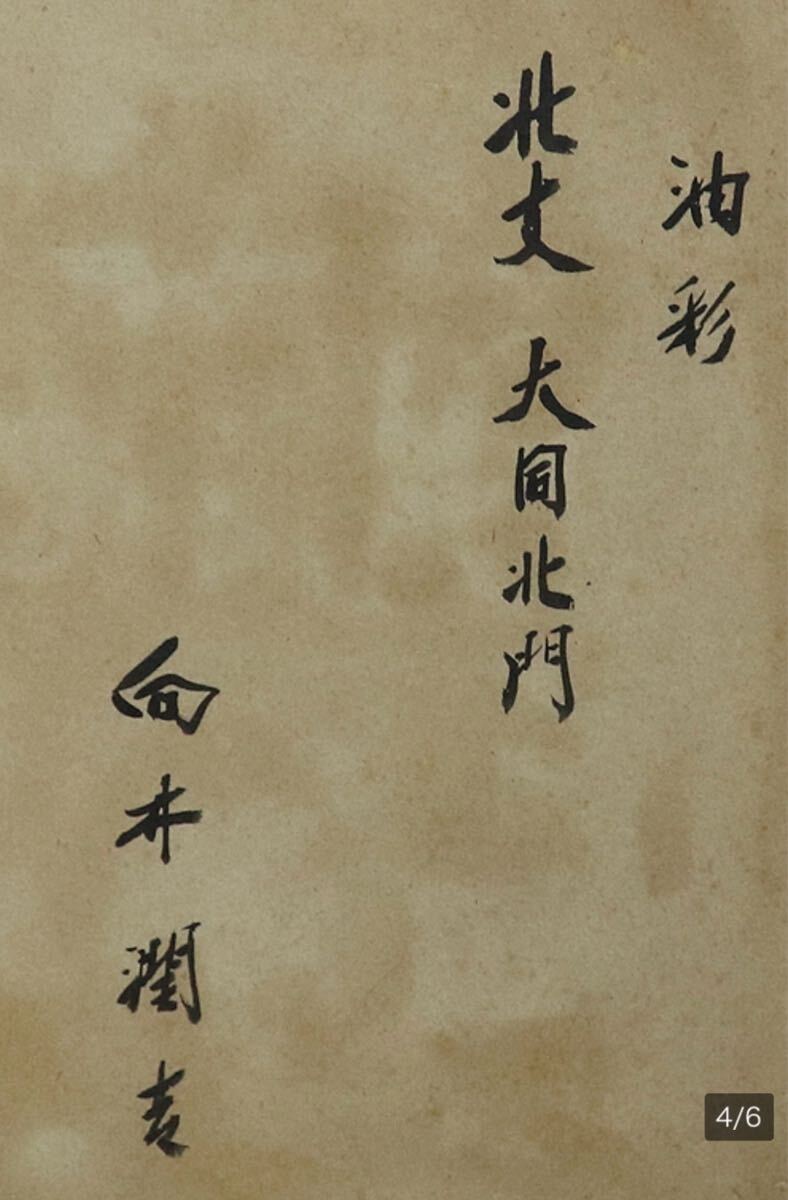 油彩
北支 大同北門
向井潤吉
4/6